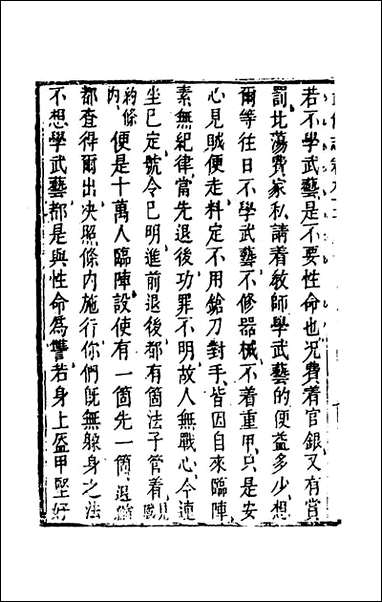 若不學武藝是不要性命也况費着官銀又有賞
罰比蕩費家私請着教師學武藝的便益多少想
爾等往日不學武藝不修器械不着重甲只是安
心見賊便走料定不用鎗刀對手皆因自來臨陣
素無紀律當先退後功罪不明故人無戰心今連
坐已定號令已明進前退後都有箇法子管着見
約條内便是十萬人臨陣設使有一箇先一箇退
都査得爾出决照條内施行你們旣無躲身之法
不想學武藝都是與性命爲讐若身上盔甲堅好